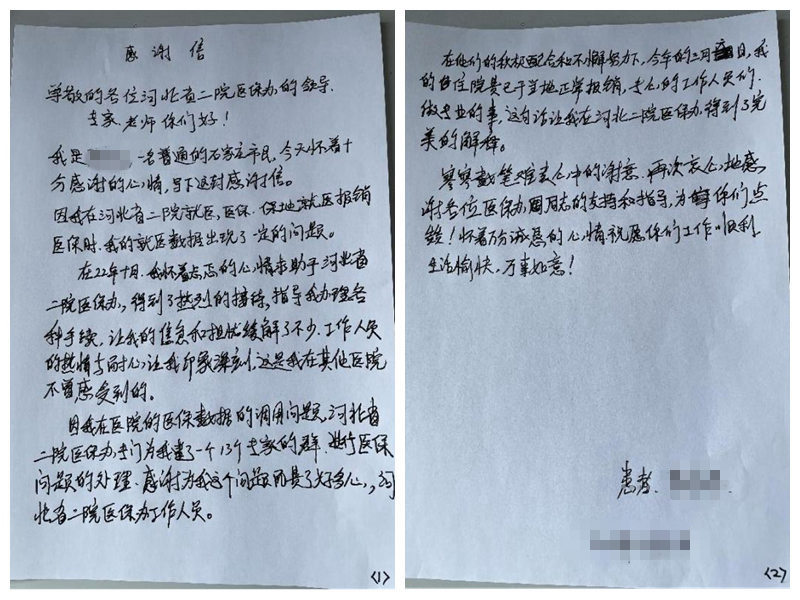 感谢信
尊敬的各位河北省二院医保办的领导.
专家.老师你们好!
我是 ,一名普通的石家庄市民,今天怀着十
分感谢的心情,写下这封感谢信。
因我在河北省二院就医,医保.保地就医报销
医保时.我的就医数据出现了一定的问题。
在22年十月.我怀着忐忑的心情求助于河北省
二院医保办,得到了热烈的接待,指导我办理各
种手续.让我的焦急和担忧缓解了不少.工作人员
的热情与耐心,让我印象深刻,这是我在其他医院
不曾感受到的。
因我在医院的医保数据的调用问题,河北省
二院医保办,专门为我建了一个13个专家的群.进行医保
问题的处理.感谢为我这个问题而费了好多心,,河
北省二院医保办工作人员。
<1>
在他们的积极配合和不懈努力下,今年的三月 日,我
的住院费已于当地正常报销,专心的工作人员们.
做专业的事,这句话让我在河北二院医保办,得到了完
美的解释。
寥寥数笔难表心中的谢意.再次衷心地感
谢各位医保办周同志的支持和指导,为 你们点
赞!怀着万分诚恳的心情祝愿你们工作顺利
生活愉快,万事如意!
患者.
<2>